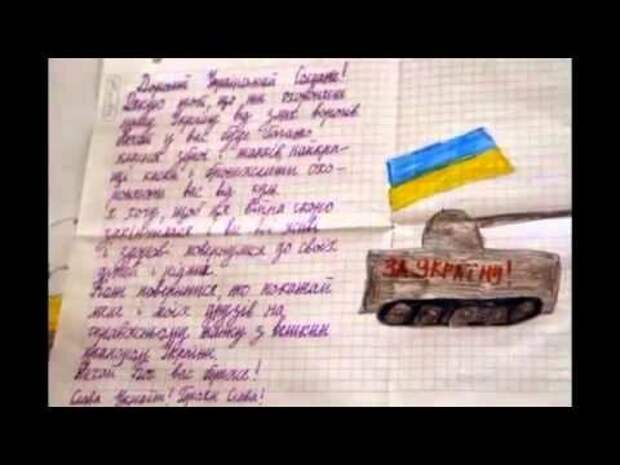 Дорогий Український Солдате!
Дякую тобі, що ти охороняєш
нашу Україну від злих ворогів
Нехай у вас буде багато
класної зброї і танків найкра-
щі каски і бронежилети охо-
роняють вас від куль
Я хочу, щоб ця війна скоро
закінчилася і ви всі живі
й здорові повернулися до своїх
дітей і рідних.
Коли повернетеся, то покатай
мене і моїх друзів на
справжньому танку з великим
прапором України.
Нехай Бог вас береже!
Слава Україні! Героям Слава!
ЗА УКРАЇНУ!